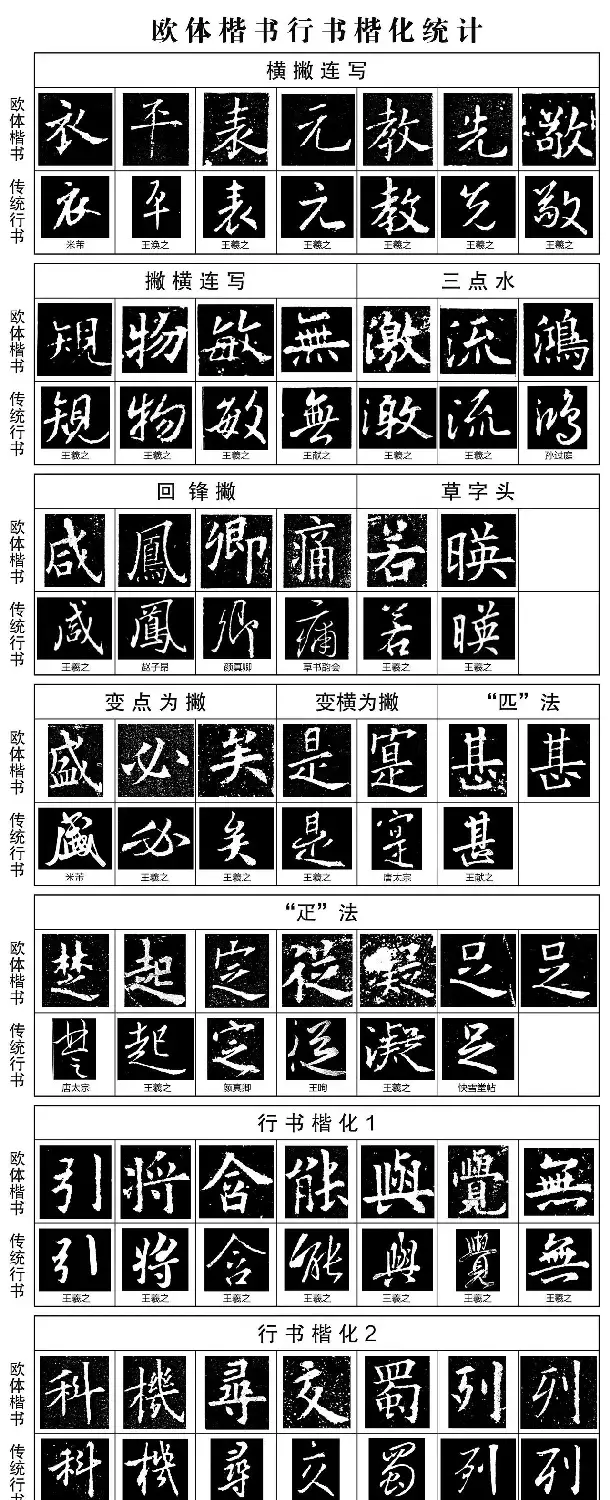 欧体楷书行书楷化统计
横撇连写
欧体楷书
衣 平 表 元 教 先 敬
传统行书
衣 平 表 元 教 先 敬
米芾 王涣之 王羲之 王羲之 王羲之 王羲之 王羲之
撇横连写 三点水
欧体楷书
規 物 敏 無 激 流 鴻
传统行书
規 物 敏 無 激 流 鴻
王羲之 王羲之 王羲之 王献之 王羲之 王羲之 孙过庭
回锋撇 草字头
欧体楷书
咸 鳳 卿 痛 若 暎
传统行书
咸 鳳 卿 痛 若 暎
王羲之 赵子昂 颜真卿 草书韵会 王羲之 王羲之
变点为撇 变横为撇 “匹”法
欧体楷书
盛 必 矣 是 寔 甚 甚
传统行书
盛 必 矣 是 寔 甚
米芾 王羲之 王羲之 王羲之 唐太宗 王献之
“疋”法
欧体楷书
楚 起 定 從 凝 足 足
传统行书
楚 起 定 從 凝 足
唐太宗 王羲之 颜真卿 王珣 王羲之 快雪堂帖
行书楷化1
欧体楷书
引 將 含 能 與 覺 無
传统行书
引 將 含 能 與 覺 無
王羲之 王羲之 王羲之 王羲之 三羲之 王羲之 王羲之
行书楷化2
欧体楷书
科 機 尋 交 蜀 列 列
传统行书
科 機 尋 交 蜀 列 列